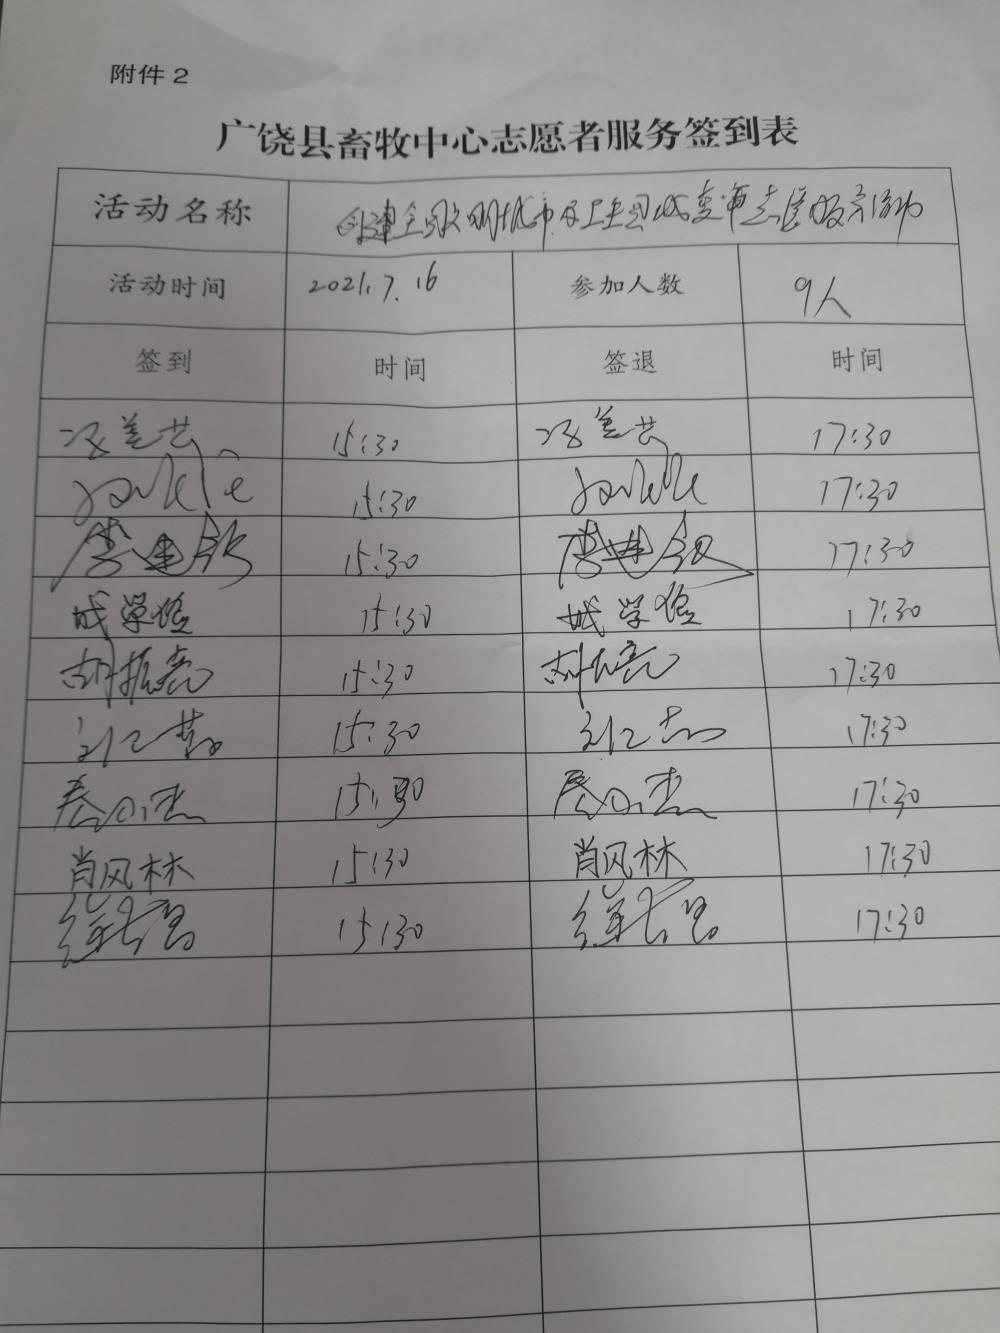 附件2
广饶县畜牧中心志愿者服务签到表
活动名称 创建全国文明城市及卫生县城复审志愿服务活动
活动时间 2021.7.16 参加人数 9人
签到 时间 签退 时间
15:30 17:30
15:30 17:30
李建 15:30 李建 17:30
学 15:30 学 17:30
胡振亮 15:30 胡 亮 17:30
刘 15:30 刘 17:30
15:30 17:30
肖风林 15:30 肖风林 17:30
15:30 17:30